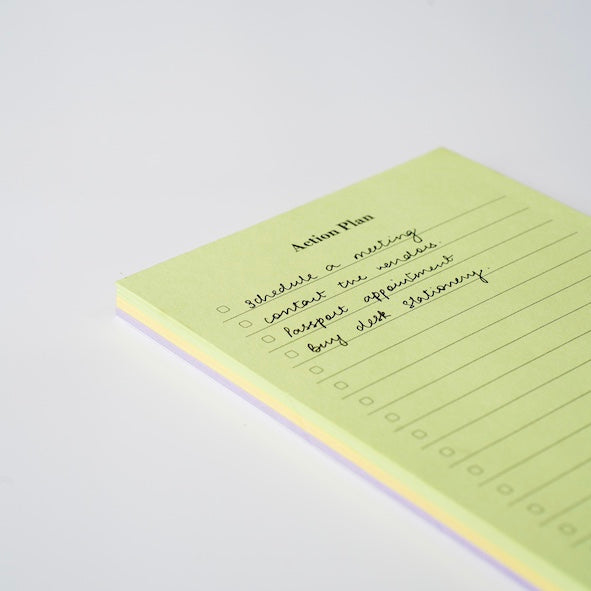 Action Plan
Schedule a meeting
contact the vendors.
Passport appointment
Buy desk stationery.